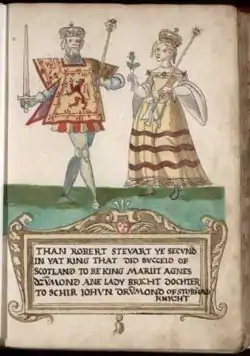 THAN ROBERT STEVART YE SECVND
IN YAT RING THAT DID SVCCEID OF
SCOTLAND TO BE KING MARIIT AGNES
DRVMOND ANE LADY BRICHT DOCHTER
TO SCHIR IOHVN DRVMOND OF
KNYCHT